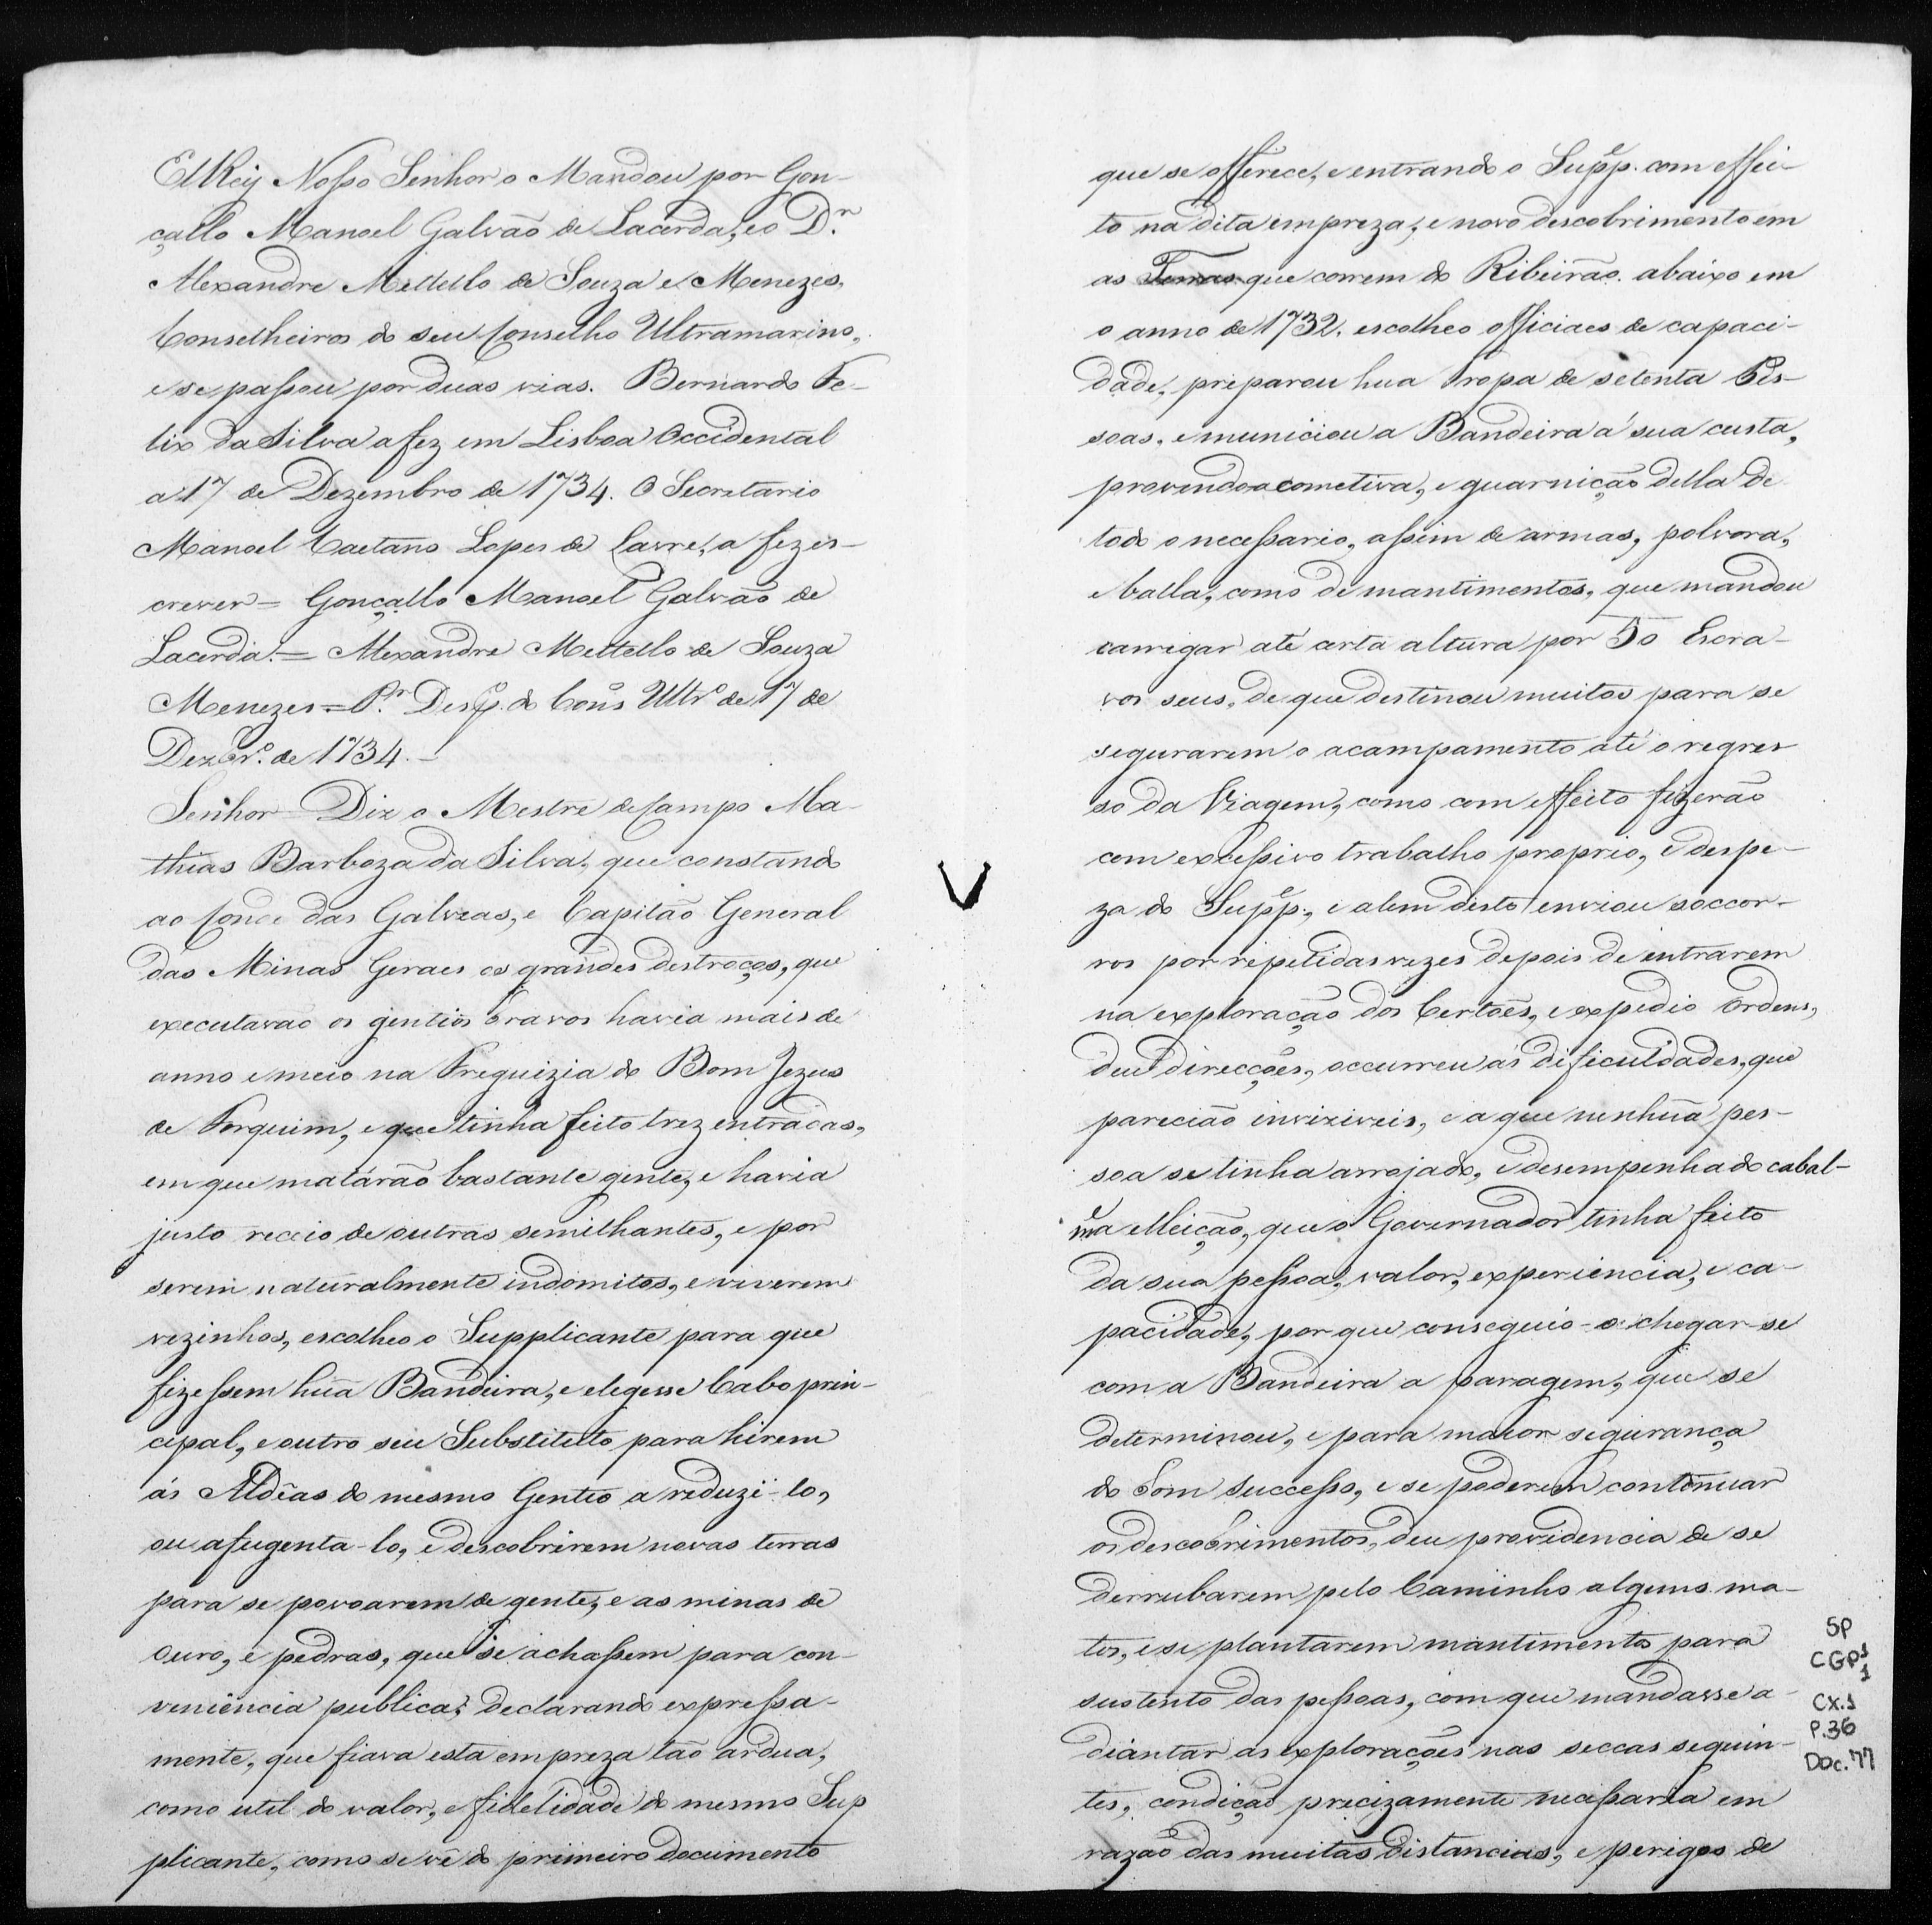 ElRey Nosso Senhor o Mandou por Gon-
çallo Manoel Galvão de Lacerda, eo D.r
Alexandre Mettello de Souza e Menezes,
Conselheiros do seu Conselho Ultramarino,
e se passou por duas vias. Bernardo Fe-
lix da Silva a fez em Lisboa Occidental
a 17 de Dezembro de 1734. O Secretario
Manoel Caetano Lopes de Lavre, a fez es-
crever = Gonçallo Manoel Galvão de
Lacerda. = Alexandre Mettello de Souza
Menezes = P.r Desp.o do Cons.o Ultr.o de 17 de
Dezbr.o de 1734. -
Senhor = Diz o Mestre de Campo Ma-
thias Barboza da Silva, que constando
ao Conde das Galveas, e Capitão General
das Minas Geraes os grandes destroços, que
executavão os gentios bravos havia mais de
anno e meio na Freguizia do Bom Jezus
de Forquim, e que tinha feito trez entradas,
em que matárão bastante gente, e havia
justo receio de outras semilhantes, e por
serem naturalmente indomitos, e viverem
vezinhos, escolheo o Supplicante para que
fizessem hũa Bandeira, e elegesse Cabo prin-
cipal, e outro seu Substituto para hirem
ás Aldêas do mesmo Gentio a reduzi-lo,
ou afugenta-lo, e descobrirem novas terras
para se povoarem de gente, e as minas de
ouro, e pedras, que se achassem para con-
veniencia publica, declarando expressa-
mente, que fiava esta empreza tão ardua,
como util do valor, e fidelidade do mesmo Sup
plicante, como se vê do primeiro documento
que se offerece, e entrando o Supp.e com effei-
to na dita empreza, e novo descobrimento em
as Terras que correm do Ribeirão abaixo em
o anno de 1732. escolheo officiaes de capaci-
dade, preparou hua Tropa de setenta Pes-
soas, e municiou a Bandeira á sua custa,
provendo a cometiva, e guarnição della de
todo o necessario, assim de armas, polvora,
e balla, como de mantimentos, que mandou
carregar até certa altura por 50 Escra-
vos seus, de que destinou muitos para se
segurarem o acampamento até o regres
so da Viagem, como com effeito fizerão
com excessivo trabalho proprio, e despe-
za do Supp.e, e alem disto enviou soccor-
ros por repetidas vezes depois de entrarem
na exploração dos Certões, expedio Ordens,
deu direcções, occurreu ás dificuldades, que
parecião inviziveis, e a que nenhũa pes-
soa se tinha arrojado, e desempenhado cabal-
m.e a elleição, que o Governador tinha feito
da sua pessoa, valor, experiencia, e ca-
pacidade, por que conseguio o chegar-se
com a Bandeira a paragem, que se
determinou, e para maior segurança
do bom successo, e se poderem continuar
os descobrimentos, deu providencia de se
derrubarem pelo Caminho alguns ma-
tos, e se plantarem mantimentos para
sustento das pessoas, com que mandasse a-
diantar as explorações nas seccas seguin-
tes, condição precizamente necessaria em
razão das muitas distancias, e perigos de
SP
CGP1
1
CX.1
P.36
DOC.77